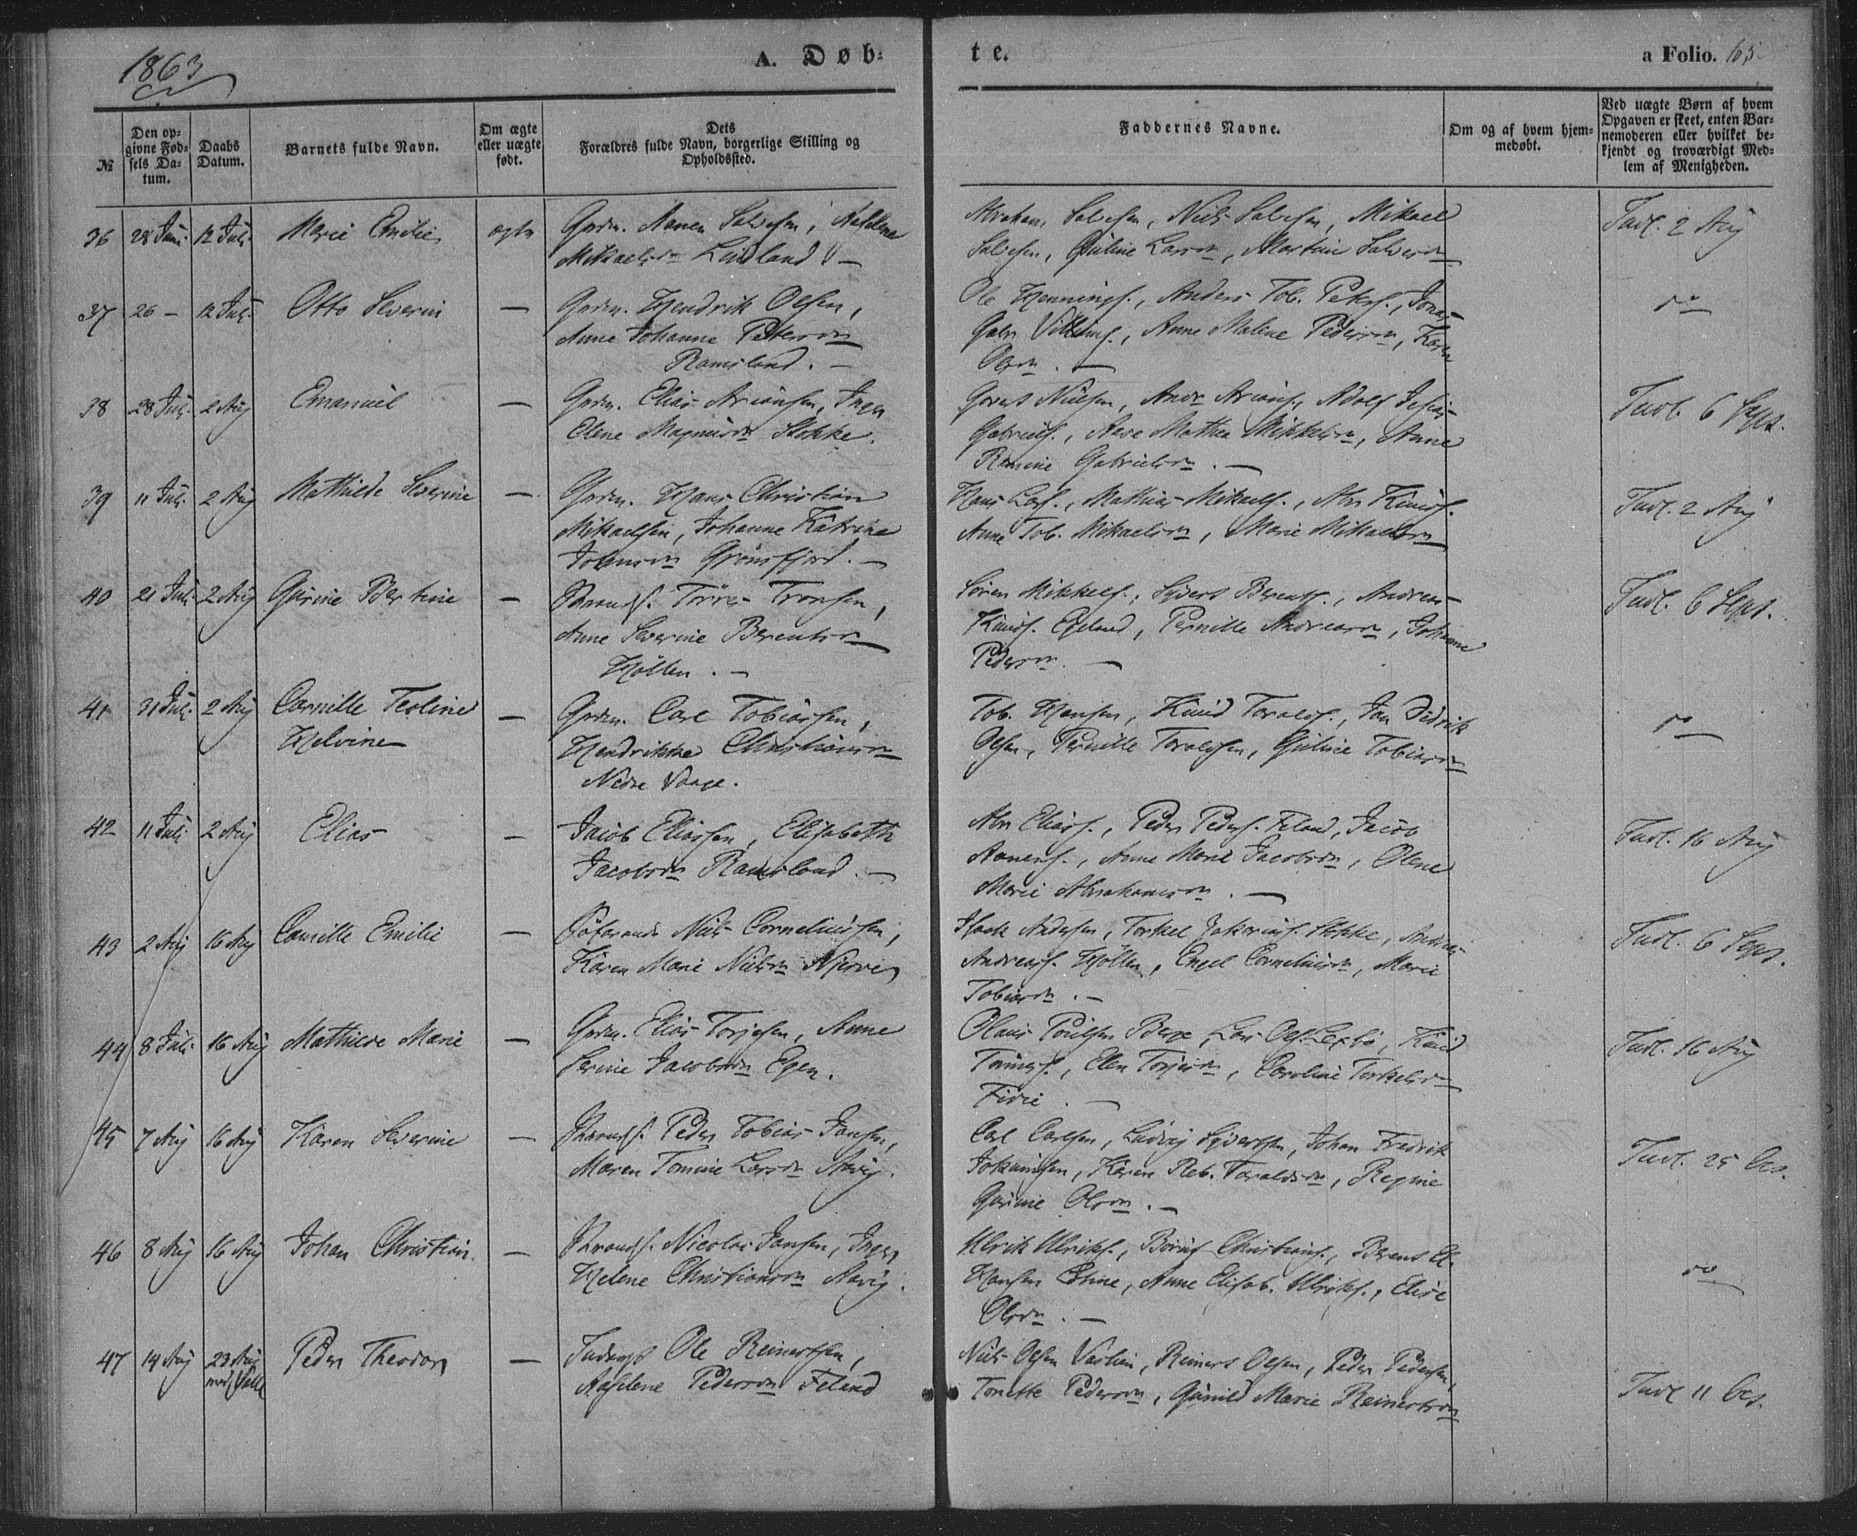 1863
A. Døb-
te.
a Folio. 65
№
Den op-
givne Fød-
sels Da-
tum.
Daabs
Datum.
Barnets fulde Navn.
Om ægte
eller uægte
født.
Dets
Forældres fulde Navn, borgerlige Stilling og
Opholdssted.
Faddernes Navne.
Om og af hvem hjem-
medøbt.
Ved uægte Børn af hvem
Opgaven er skeet, enten Bar-
nemoderen eller hvilket be-
kjendt og troværdigt Med-
lem af Menigheden.
36 28 Juni 12 Juli Marie Emilie ægte Grdm. Aanen Salvesen,
Mikaelsdn
Abraham Salvesen, Niels Salvesen, Mikael
Salvesen, Guline Larsdn, Martine Salvesdn
Indl. 2 Aug
37 26 — 12 Juli Otto Severin — Grdm. Hendrik Olsen,
Anne Johanne Pettersdn
Ramsland. —
Ole Hennings., Anders Tob. Peters., Jonas
Gabr. Villums., Anne Malene Pedersdn, Karen
Olsdn. —
do
38 28 Juli 2 Aug Emanuel — Grdm. Elias Ariansen, Inger
Olene Magnusdn Stokke.
Nielsen, Andr Arians., Adolf
Gabriels., Mathea Mikkelsdn, Anne
Gabrielsdn. —
Indl. 6 Sept.
39 11 Juli 2 Aug Mathilde Severine — Grdm. Hans Christian
Mikaelsen, Johanne Katrine
Johnsdn Grønsfjord. —
Hans Lars., Mathias Mikaels., Abr Knuds.
Anne Tob. Mikaelsdn, Marie Mikaelsdn
Indl. 2 Aug
40 21 Juli 2 Aug Gurine Bertine — Strands. Tørres Tronsen,
Anne Severine Berentsdn
Høllen. —
Søren Mikkels., Sivert Berents., Andreas
Knuds. Egeland, Pernille Andreasdn, Johanne
Pedersdn. —
Indl. 6 Sept.
41 31 Juli 2 Aug Camille Teoline
Helvine
— Grdm. Carl Tobiassen,
Hendrikke Christiansdn
Nedre Vaage.
Tob. Hansen, Knud Toralds., Jan Didrik
Olsen, Pernille Toraldsen, Guline Tobiasdn
do
42 11 Juli 2 Aug Elias — Jacob Eliassen, Elisabeth
Jacobsdn Ramsland. —
Abr Elias., Peder Peders. Feland, Jacob
Aanens., Anne Marie Jacobsdn, Olene
Marie Abrahamsdn. —
Indl. 16 Aug
43 2 Aug 16 Aug Camille Emilie — Søfarende Niels Corneliussen,
Karen Marie Nielsdn Njerve
Isaak Andersen, Torkel Zakarias. Stokke, Andreas
Andreas. Høllen, Engel Corneliusdn, Marie
Tobiasdn. —
Indl. 6 Sept.
44 8 Juli 16 Aug Mathilde Marie — Grdm. Elias Torjesen, Anne
Serine Jacobsdn Egen.
Olaus Poulsen Berge, Lars Ols. Lexbø, Knud
Tønnes., Elen Torjesdn, Caroline Torkelsdn
Fidie. —
Indl. 16 Aug
45 7 Aug 16 Aug Karen Severine — Strands. Peder Tobias Jansen,
Maren Tomine Larsdn Aavig.
Carl Carlsen, Ludvig Sivertsen, Johan Fredrik
Jokumsen, Karen Reb. Toraldsdn, Regine
Gurine Olsdn. —
Indl. 25 Oct.
46 8 Aug 16 Aug Johan Christian. — Strands. Nicolai Jansen, Inger
Helene Christiansdn Aavig.
Ulrik Ulriks., Børuf Christians., Berent El.
Hansen, Anne Elisab. Ulriks., Elise
Olsdn. —
do
47 14 Aug 23 Aug
med Valle
Peder Theodor — Inderst Ole Reinertsen,
Aaselene Pedersdn Feland
Niels Olsen Vasbøe, Reinert Olsen, Peder Pedersen,
Tonette Pedersdn, Gunild Marie Reinertsdn
Indl 11 Oct.